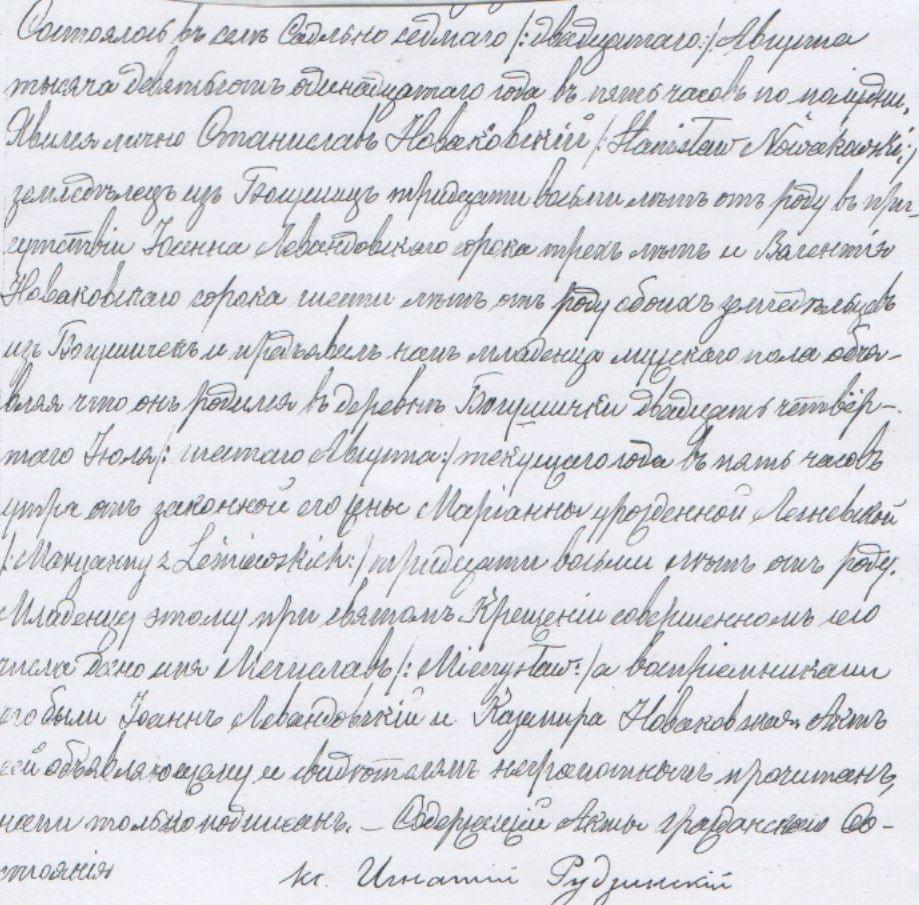 Состоялось въ селѣ Садльно седмаго /:двадцатаго:/ Августа
тысяча девятьсотъ одинадцатаго года въ пять часовъ по полудни.
Явился лично Станиславъ Новаковскій /:Stanisław Nowakowski:/
земледѣлецъ изъ тридцати восьми лѣтъ отъ роду въ при
сутствіи Іоанна Левандовскаго сорока трехъ лѣтъ и Валентія
Новаковскаго сорока шести лѣтъ отъ роду обоихъ земледѣльцевъ
изъ и предъявилъ намъ младенца мужскаго пола объя-
вляя что онъ родился въ деревнѣ Богушички двадцать четвер-
таго Іюля /:шестаго Августа:/ текущаго года въ пять часовъ
утра отъ законной его жены Маріанны урожденной
/:Maryanny z:/ тридцати восьми лѣтъ отъ роду.
Младенцу этому при святомъ Крещеніи совершенномъ сего
числа дано имя Мечиславъ /:Mieczysław:/ а воспріемниками
его были Іоаннъ Левандовскій и Казимира Новаковская. Актъ
сей объявляющему и свидѣтелямъ неграмотнымъ прочитанъ,
нами только подписанъ. – Содержащій Акты гражданскаго Со-
стоянія
кс. Игнатій Рудзинскій